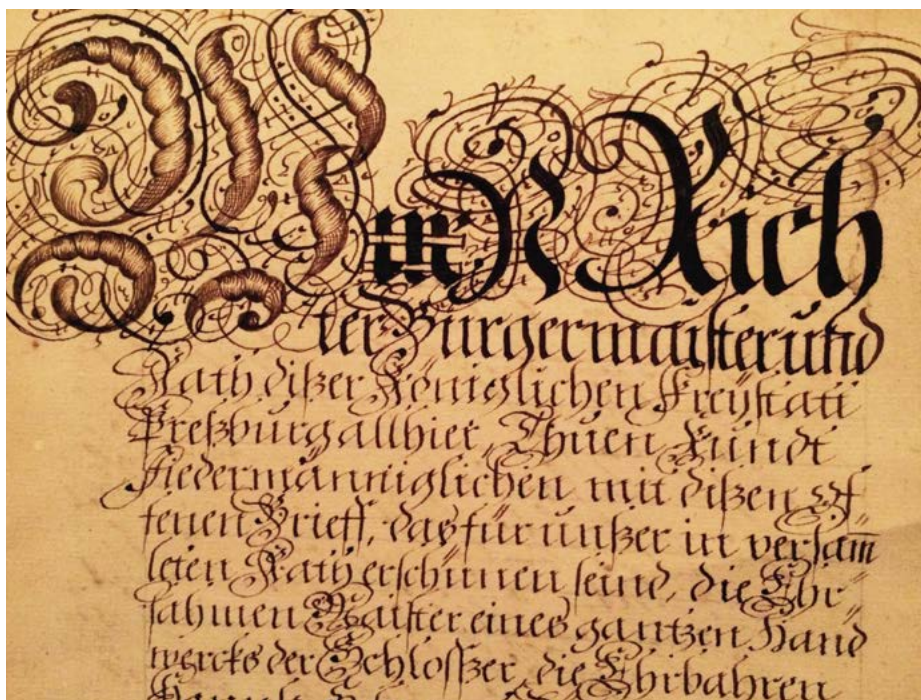 Wir N Rich
ter Burgermaister und
Rath dißer Königlichen Freÿstatt
Preßburg allhier, Thuen Kundt
Jedermänniglichen mit dißen Of
fenen Brieff, das für ünßer in versam̅
leten Rath erschinnen seind, die Ehr"
sahmen Maister eines gantzen Hand
wercks der Schlosßer, die Ehrbahren